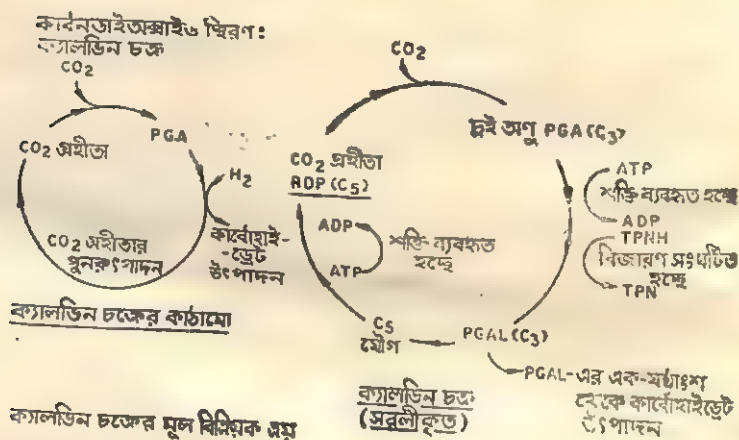 কার্বনডাইঅক্সাইড স্থিরণ:
ক্যালভিন চক্র
CO₂
PGA
CO₂ গ্রহীতা
H₂
কার্বোহাই-
-ড্রেট
উৎপাদন
CO₂ গ্রহীতার
পুনরুৎপাদন
ক্যালভিন চক্রের কাঠামো
CO₂
দুই অণু PGA (C₃)
CO₂ গ্রহীতা
RDP (C₅)
ATP
শক্তি ব্যবহৃত হচ্ছে
ADP
TPNH
বিজারণ সংঘটিত
হচ্ছে
TPN
ADP
শক্তি ব্যবহৃত
হচ্ছে
ATP
C₅
যৌগ
PGAL (C₃)
PGAL-এর এক-ষষ্ঠাংশ
থেকে কার্বোহাইড্রেট
উৎপাদন
ক্যালভিন চক্র
(সরলীকৃত)
ক্যালভিন চক্রের মূল বিক্রিয়ক